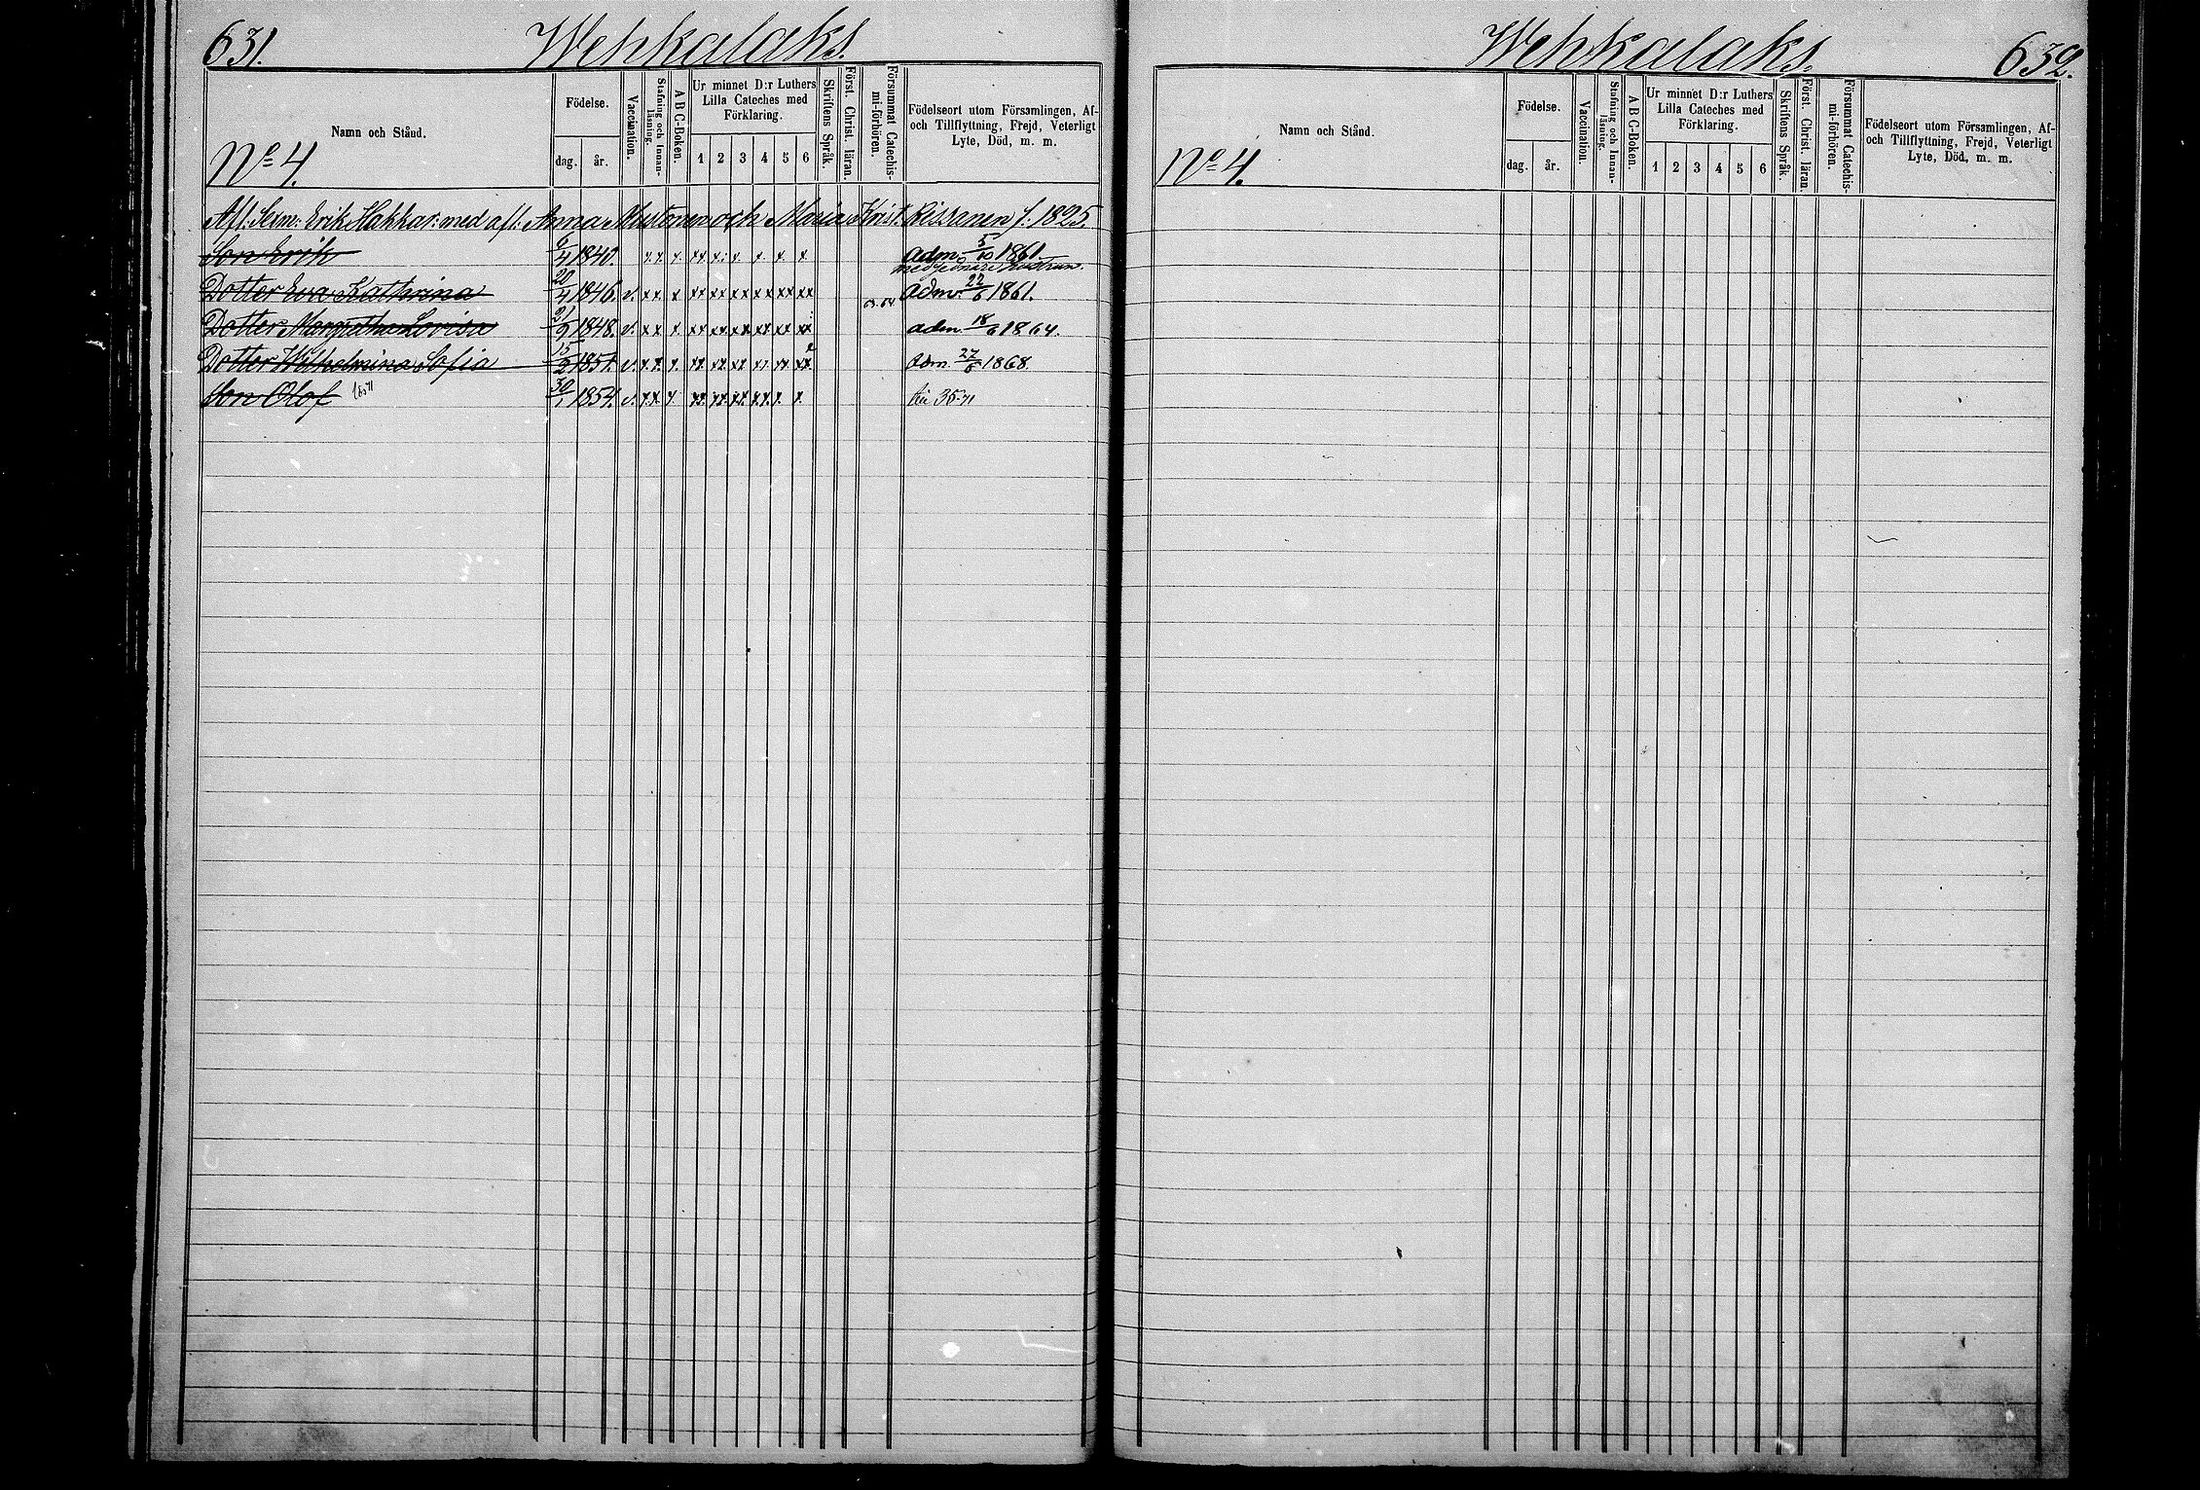 631.
Wehkalaks.
Namn och Stånd.
No 4.
Födelse.
dag. år.
Vaccination.
Stafning och Innan-
läsning.
A B C-Boken.
Ur minnet D:r Luthers
Lilla Cateches med
Förklaring.
1 2 3 4 5 6
Skriftens Språk.
Först. Christ. läran.
Försummat Catechis-
mi-förhören.
Födelseort utom Församlingen, Af-
och Tillflyttning, Frejd, Veterligt
Lyte, Död, m. m.
Afl: Erik Hakkar: med afl: Anna Mustonen och Maria Krist. Rissanen f. 1825.
Son Erik 6/4 1840. x x x xx x x x x x adm. 5/10 1861.
Dotter Eva Kathrina 20/4 1846. v. xx x xx xx xx xx xx xx 63.64 adm. 22/6 1861.
Dotter Margretha Lovisa 21/9 1848. v. xx x xx xx xx xx xx xx adm. 18/6 1864.
Dotter Wilhelmina Sofia 15/2 1851. v. xx x xx xx xx xx xx xx adm. 27/6 1868.
Son Olof 30/1 1854. v. xx x xx xx xx xx x x
Wehkalaks.
632.
Namn och Stånd.
No 4.
Födelse.
dag. år.
Vaccination.
Stafning och Innan-
läsning.
A B C-Boken.
Ur minnet D:r Luthers
Lilla Cateches med
Förklaring.
1 2 3 4 5 6
Skriftens Språk.
Först. Christ. läran.
Försummat Catechis-
mi-förhören.
Födelseort utom Församlingen, Af-
och Tillflyttning, Frejd, Veterligt
Lyte, Död, m. m.